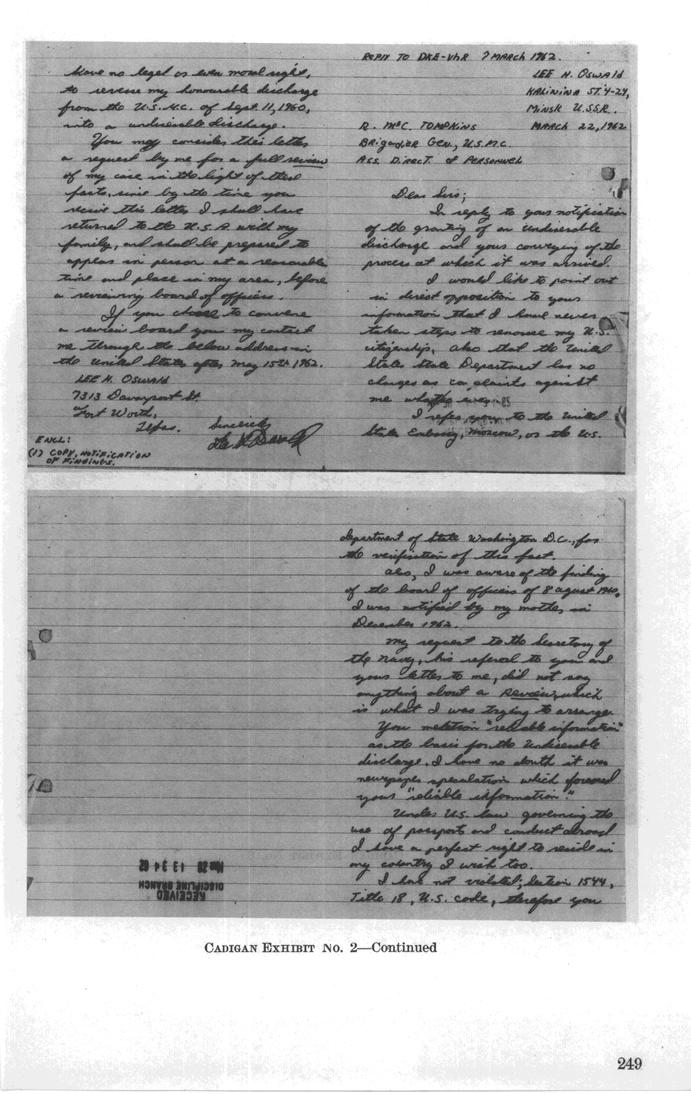 have no legal or even moral right,
to reverse my honourable discharge
from the U.S.M.C. of Sept. 11, 1960,
into a undesirable discharge.
You may consider this letter
a request by me for a full review
of my case in the light of these
facts, since by the time you
recive this letter I shall have
returned to the U.S.A. with my
family, and shall be prepared to
appear in person at a reasonable
time and place in my area, before
a reviewing board of officers.
If you choose to convene
a review board you my contact
me through the below address in
the United States after May 15th 1962.
LEE H. OSWALD
7313 Davenport St.
Fort Worth,
Texas.
Sincerely
ENCL:
(1) COPY, NOTIFICATION
OF FINDINGS.
REPLY TO DKE-VhR 7 MARCH 1962.
LEE H. OSWALD
KALININA ST. 4-24,
MINSK U.S.S.R.
R. McC. TOMPKINS MARCH 22, 1962
BRIGADIER GEN., U.S.M.C.
ASS. DIRECT. of PERSONNEL
Dear Sirs;
In reply to your notification
of the granting of an undesirable
discharge and your conveying of the
process at which it was arrived.
I would like to point out
in direct opposition to your
information that I have never
taken steps to renounce my U.S.
citizenship. Also that the United
States State Department has no
charges or complaints against
me
I refer you to the United
States Embassy, Moscow, or the U.S.
department of State Washington D.C., for
the verification of this fact.
also, I was aware of the finding
of the board of officers of 8 august 1960,
I was notified by my mother in
December 1962.
My request to the Secretary of
the Navy, his referal to you and
your letter to me, did not say
anything about a Review, which
is what I was trying to arrange
You metion "reliable information"
as the basis for the undesirable
discharge. I have no doubt it was
newpaper speculation which formed
your "reliable information".
Under U.S. law governing the
use of passports and conduct abroad
I have a perfect right to reside in
my country I wish too.
I have not violated; Section 1544,
Title 18, U.S. code, therefore you
RECEIVED
DISCIPLINE BRANCH
MAR 28 13 34 62
CADIGAN EXHIBIT NO. 2—Continued
249